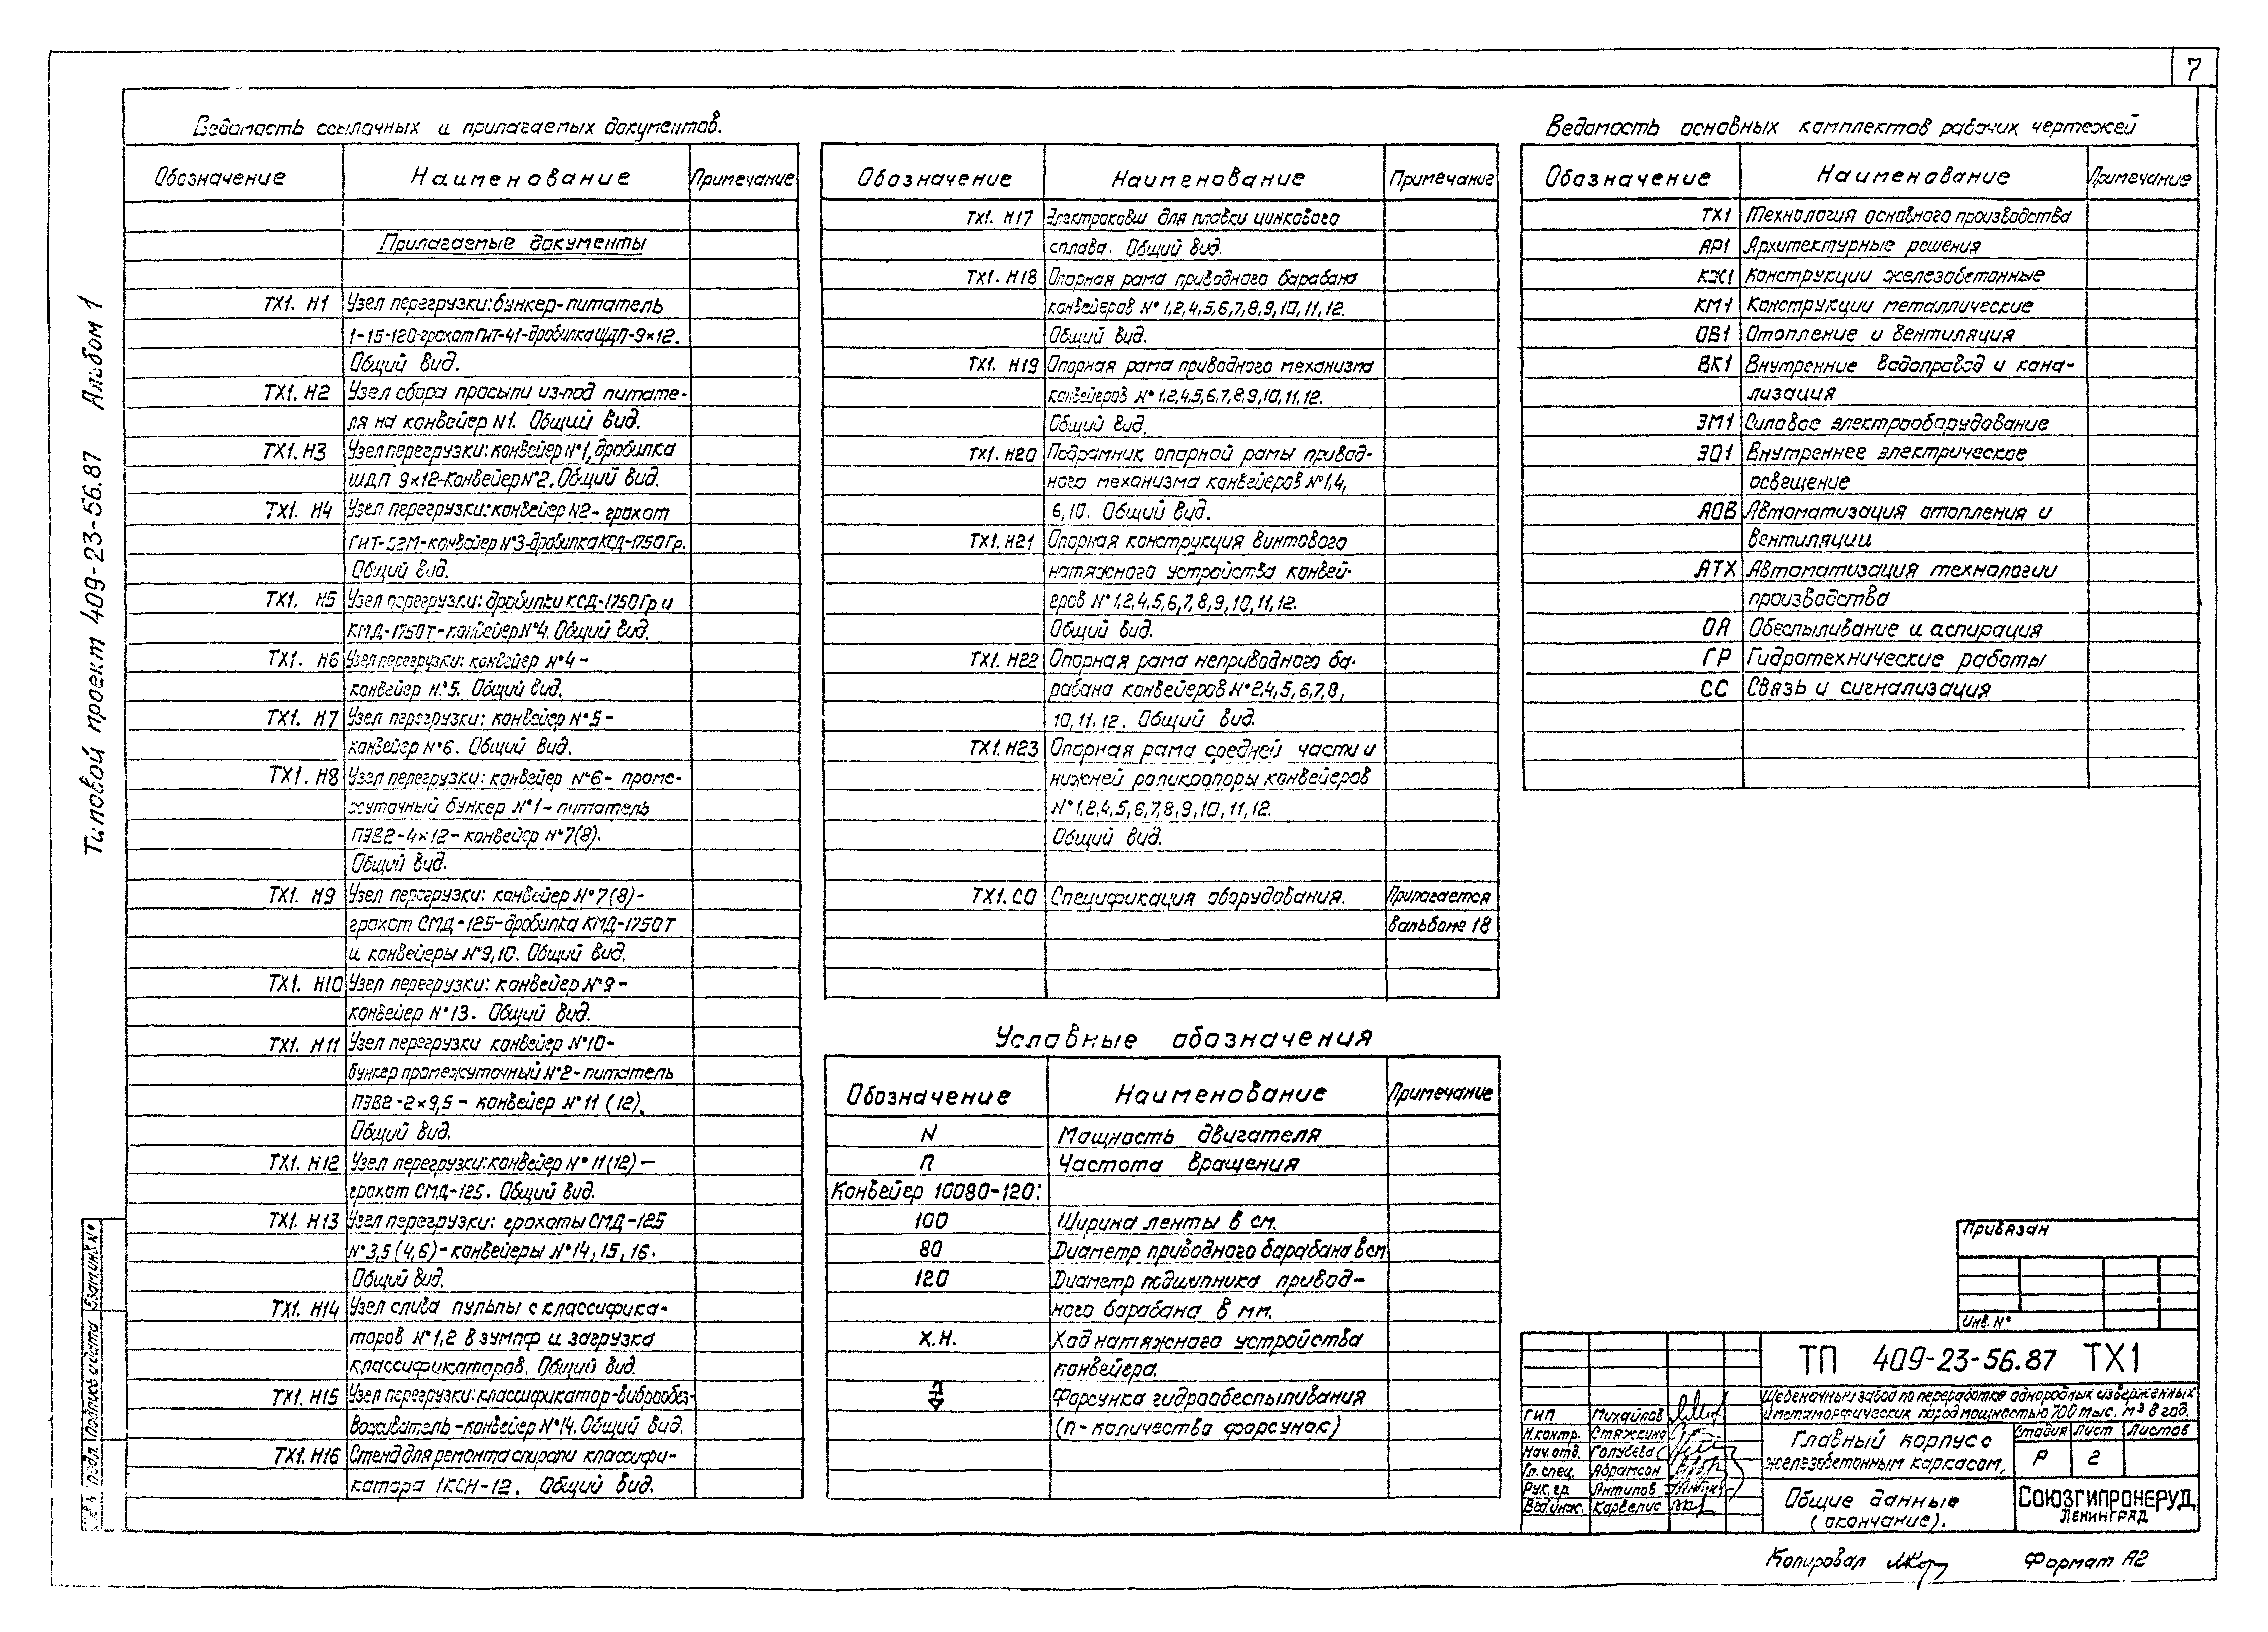 7
Типовой проект 409-23-56.87 Альбом 1
Ведомость ссылочных и прилагаемых документов.
Обозначение Наименование Примечание
Прилагаемые документы
ТХ1. Н1 Узел перегрузки: бункер-питатель
1-15-120-грохот ГИТ-41-дробилка ЩДП-9×12.
Общий вид.
ТХ1. Н2 Узел сбора просыпи из-под питате-
ля на конвейер N1. Общий вид.
ТХ1. Н3 Узел перегрузки: конвейер №1, дробилка
ЩДП 9×12-конвейер №2. Общий вид.
ТХ1. Н4 Узел перегрузки: конвейер N2-грохот
ГИТ-52М-конвейер №3-дробилка КСД-1750Гр.
Общий вид.
ТХ1. Н5 Узел перегрузки: дробилки КСД-1750Гр и
КМД-1750Т-конвейер №4. Общий вид.
ТХ1. Н6 Узел перегрузки: конвейер №4-
конвейер №5. Общий вид.
ТХ1. Н7 Узел перегрузки: конвейер №5-
конвейер №6. Общий вид.
ТХ1. Н8 Узел перегрузки: конвейер №6-проме-
жуточный бункер №1-питатель
ПЭВ2-4×12-конвейер №7(8).
Общий вид.
ТХ1. Н9 Узел перегрузки: конвейер №7(8)-
грохот СМД-125-дробилка КМД-1750Т
и конвейеры №9,10. Общий вид.
ТХ1. Н10 Узел перегрузки: конвейер №9-
конвейер №13. Общий вид.
ТХ1. Н11 Узел перегрузки конвейер №10-
бункер промежуточный №2-питатель
ПЭВ2-2×9,5-конвейер №11 (12).
Общий вид.
ТХ1. Н12 Узел перегрузки: конвейер №11(12)-
грохот СМД-125. Общий вид.
ТХ1. Н13 Узел перегрузки: грохоты СМД-125
№3,5(4,6)-конвейеры №14, 15, 16.
Общий вид.
ТХ1. Н14 Узел слива пульпы с классифика-
торов №1,2 в зумпф и загрузка
классификаторов. Общий вид.
ТХ1. Н15 Узел перегрузки: классификатор-виброобез-
воживатель-конвейер №14. Общий вид.
ТХ1. Н16 Стенд для ремонта спирали классифи-
катора 1КСН-12. Общий вид.
Обозначение Наименование Примечание
ТХ1. Н17 Электроковш для плавки цинкового
сплава. Общий вид.
ТХ1. Н18 Опорная рама приводного барабана
конвейеров №1,2,4,5,6,7,8,9,10,11,12.
Общий вид.
ТХ1. Н19 Опорная рама приводного механизма
конвейеров №1,2,4,5,6,7,8,9,10,11,12.
Общий вид.
ТХ1. Н20 Подрамник опорной рамы привод-
ного механизма конвейеров №1,4,
6,10. Общий вид.
ТХ1. Н21 Опорная конструкция винтового
натяжного устройства конвей-
еров №1,2,4,5,6,7,8,9,10,11,12.
Общий вид.
ТХ1. Н22 Опорная рама неприводного ба-
рабана конвейеров №2,4,5,6,7,8,
10,11,12. Общий вид.
ТХ1. Н23 Опорная рама средней части и
нижней роликоопоры конвейеров
№1,2,4,5,6,7,8,9,10,11,12.
Общий вид.
ТХ1.СО Спецификация оборудования. Прилагается
в альбоме 18
Условные обозначения
Обозначение Наименование Примечание
N Мощность двигателя
n Частота вращения
Конвейер 10080-120:
100 Ширина ленты в см.
80 Диаметр приводного барабана в см
120 Диаметр подшипника привод-
ного барабана в мм.
Х.Н. Ход натяжного устройства
конвейера.
n Форсунка гидрообеспыливания
(n-количество форсунок)
Ведомость основных комплектов рабочих чертежей
Обозначение Наименование Примечание
ТХ1 Технология основного производства
АР1 Архитектурные решения
КЖ1 Конструкции железобетонные
КМ1 Конструкции металлические
ОВ1 Отопление и вентиляция
ВК1 Внутренние водопровод и кана-
лизация
ЭМ1 Силовое электрооборудование
ЭО1 Внутреннее электрическое
освещение
АОВ Автоматизация отопления и
вентиляции
АТХ Автоматизация технологии
производства
ОА Обеспыливание и аспирация
ГР Гидротехнические работы
СС Связь и сигнализация
Привязан
Инв. №
ТП 409-23-56.87 ТХ1
Щебеночный завод по переработке однородных изверженных
и метаморфических пород мощностью 700 тыс. м³ в год.
ГИП Михайлов
Н.контр. Стяжкина
Нач. отд. Голубева
Гл. спец. Абрамсон
Рук. гр. Антипов
Вед.инж. Карвелис
Главный корпус с
железобетонным каркасом.
Стадия Лист Листов
Р 2
Общие данные
(окончание).
СОЮЗГИПРОНЕРУД
ЛЕНИНГРАД
Копировал Формат А2
Взам.инв.№
Подпись и дата
подл.